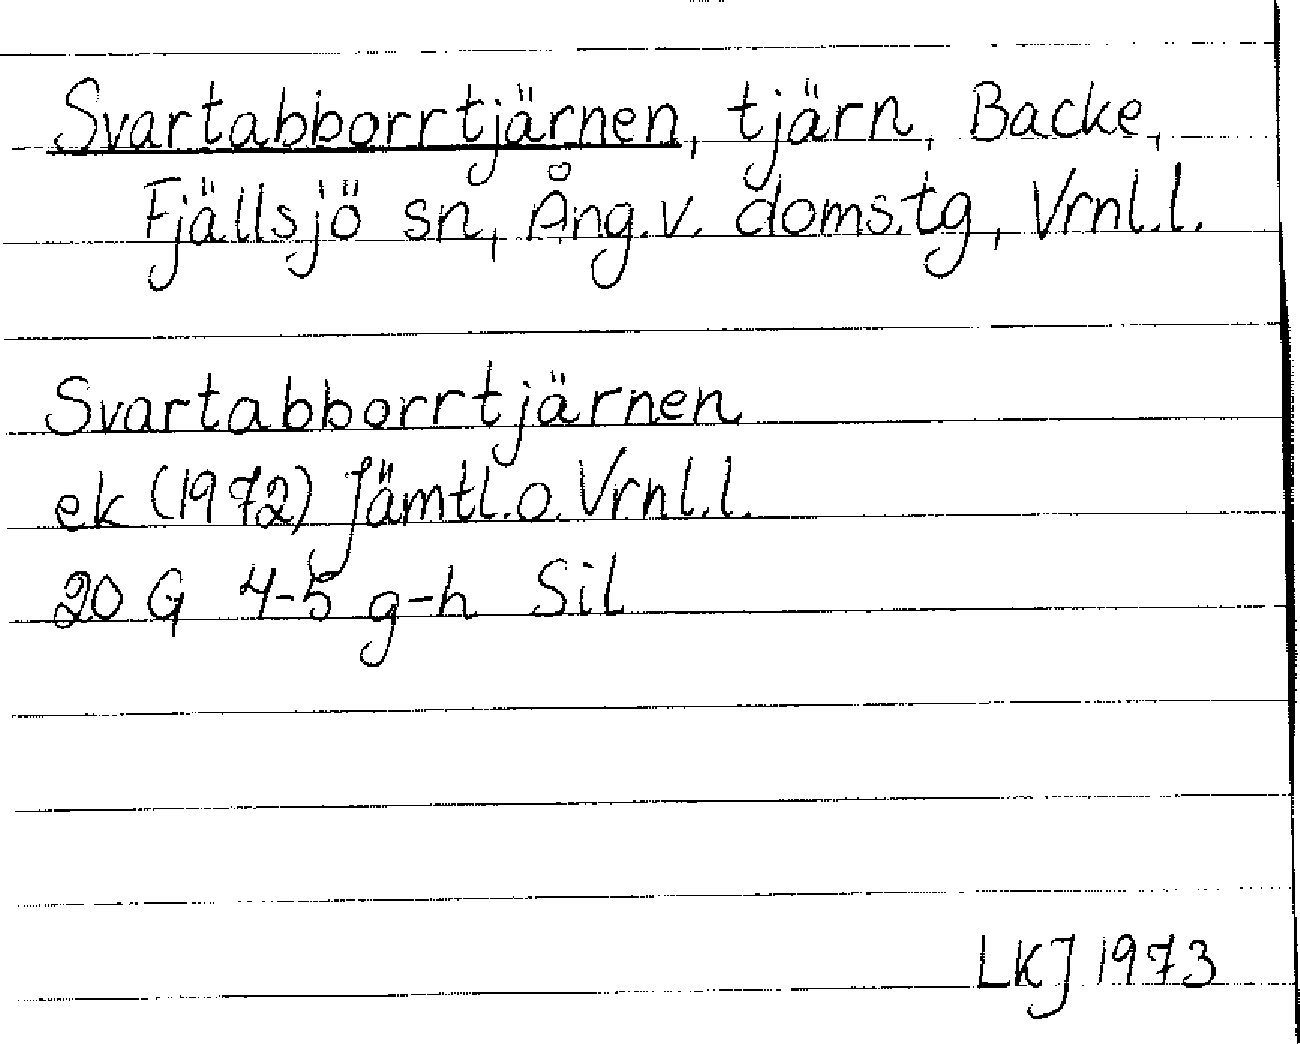 Svartabborrtjärnen, tjärn, Backe,
Fjällsjö sn, Ång.v. doms.tg, Vrnl.l.
Svartabborrtjärnen
ek (1972) Jämtl.o. Vrnl.l.
20 G 4-5 g-h Sil
LKJ 1973